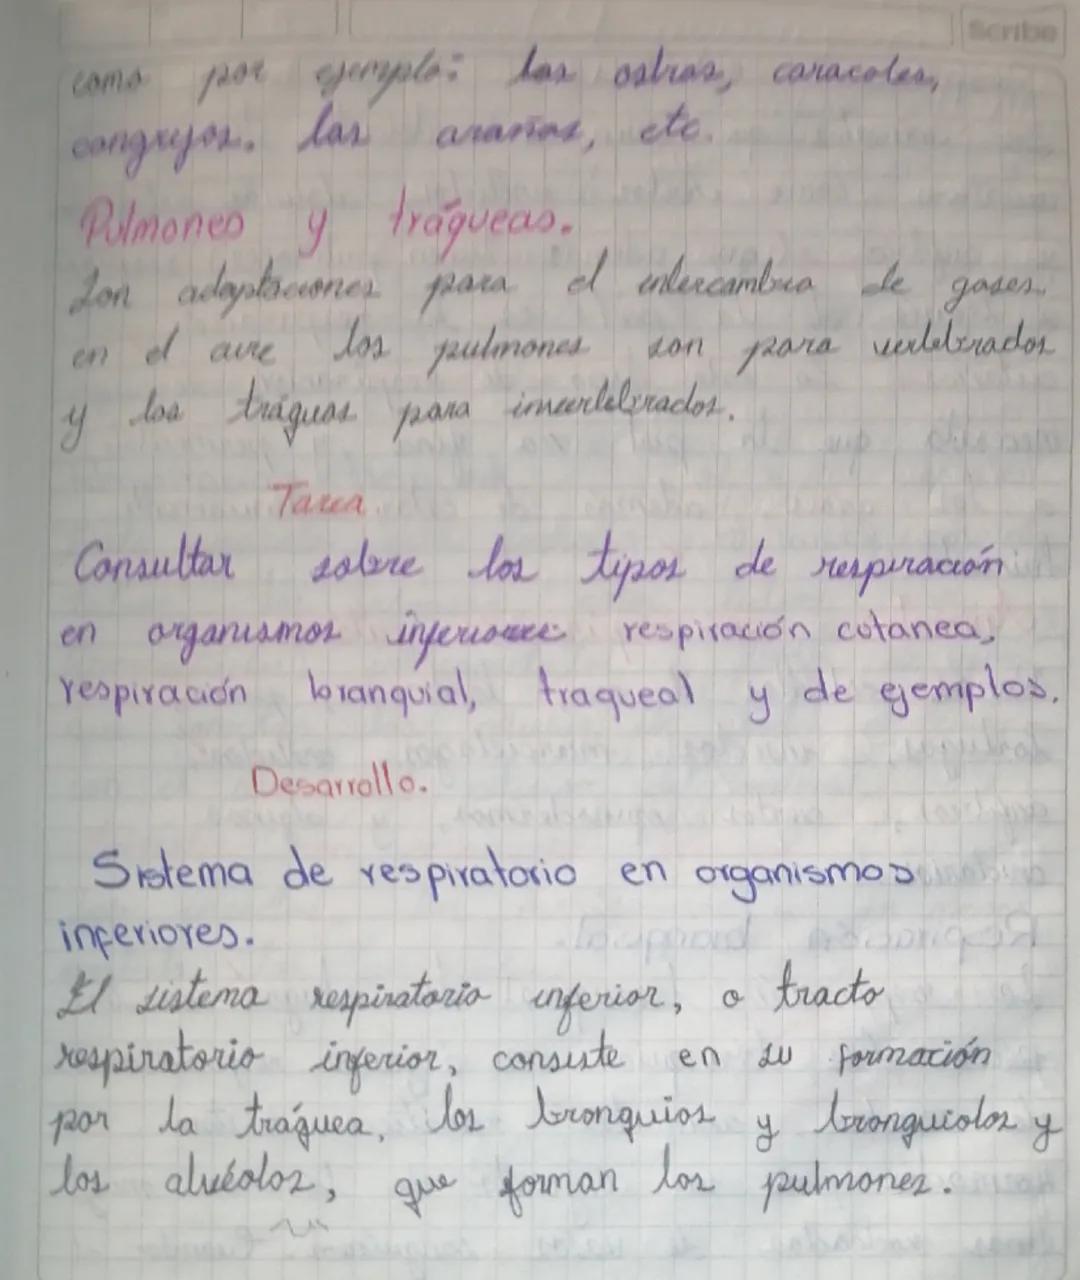 Scribe
como por ejemplo: las ostras, caracoles,
cangrejos. las arañas, etc.
Pulmones y tráqueas.
Son adaptaciones para el intercambio de gases.
en el aire los pulmones son para vertebrados
y las tráquas para invertebrados.
Tarea
Consultar sobre los tipos de respiración
en organismos inferiores respiración cotanea,
respiración branquial, traqueal y de ejemplos.
Desarrollo.
Sistema de respiratorio en organismos
inferiores.
El sistema respiratorio inferior, o tracto
respiratorio inferior, consiste en su formación
por la tráquea, los bronquios y bronquiolos y
los alvéolos, que forman los pulmones.